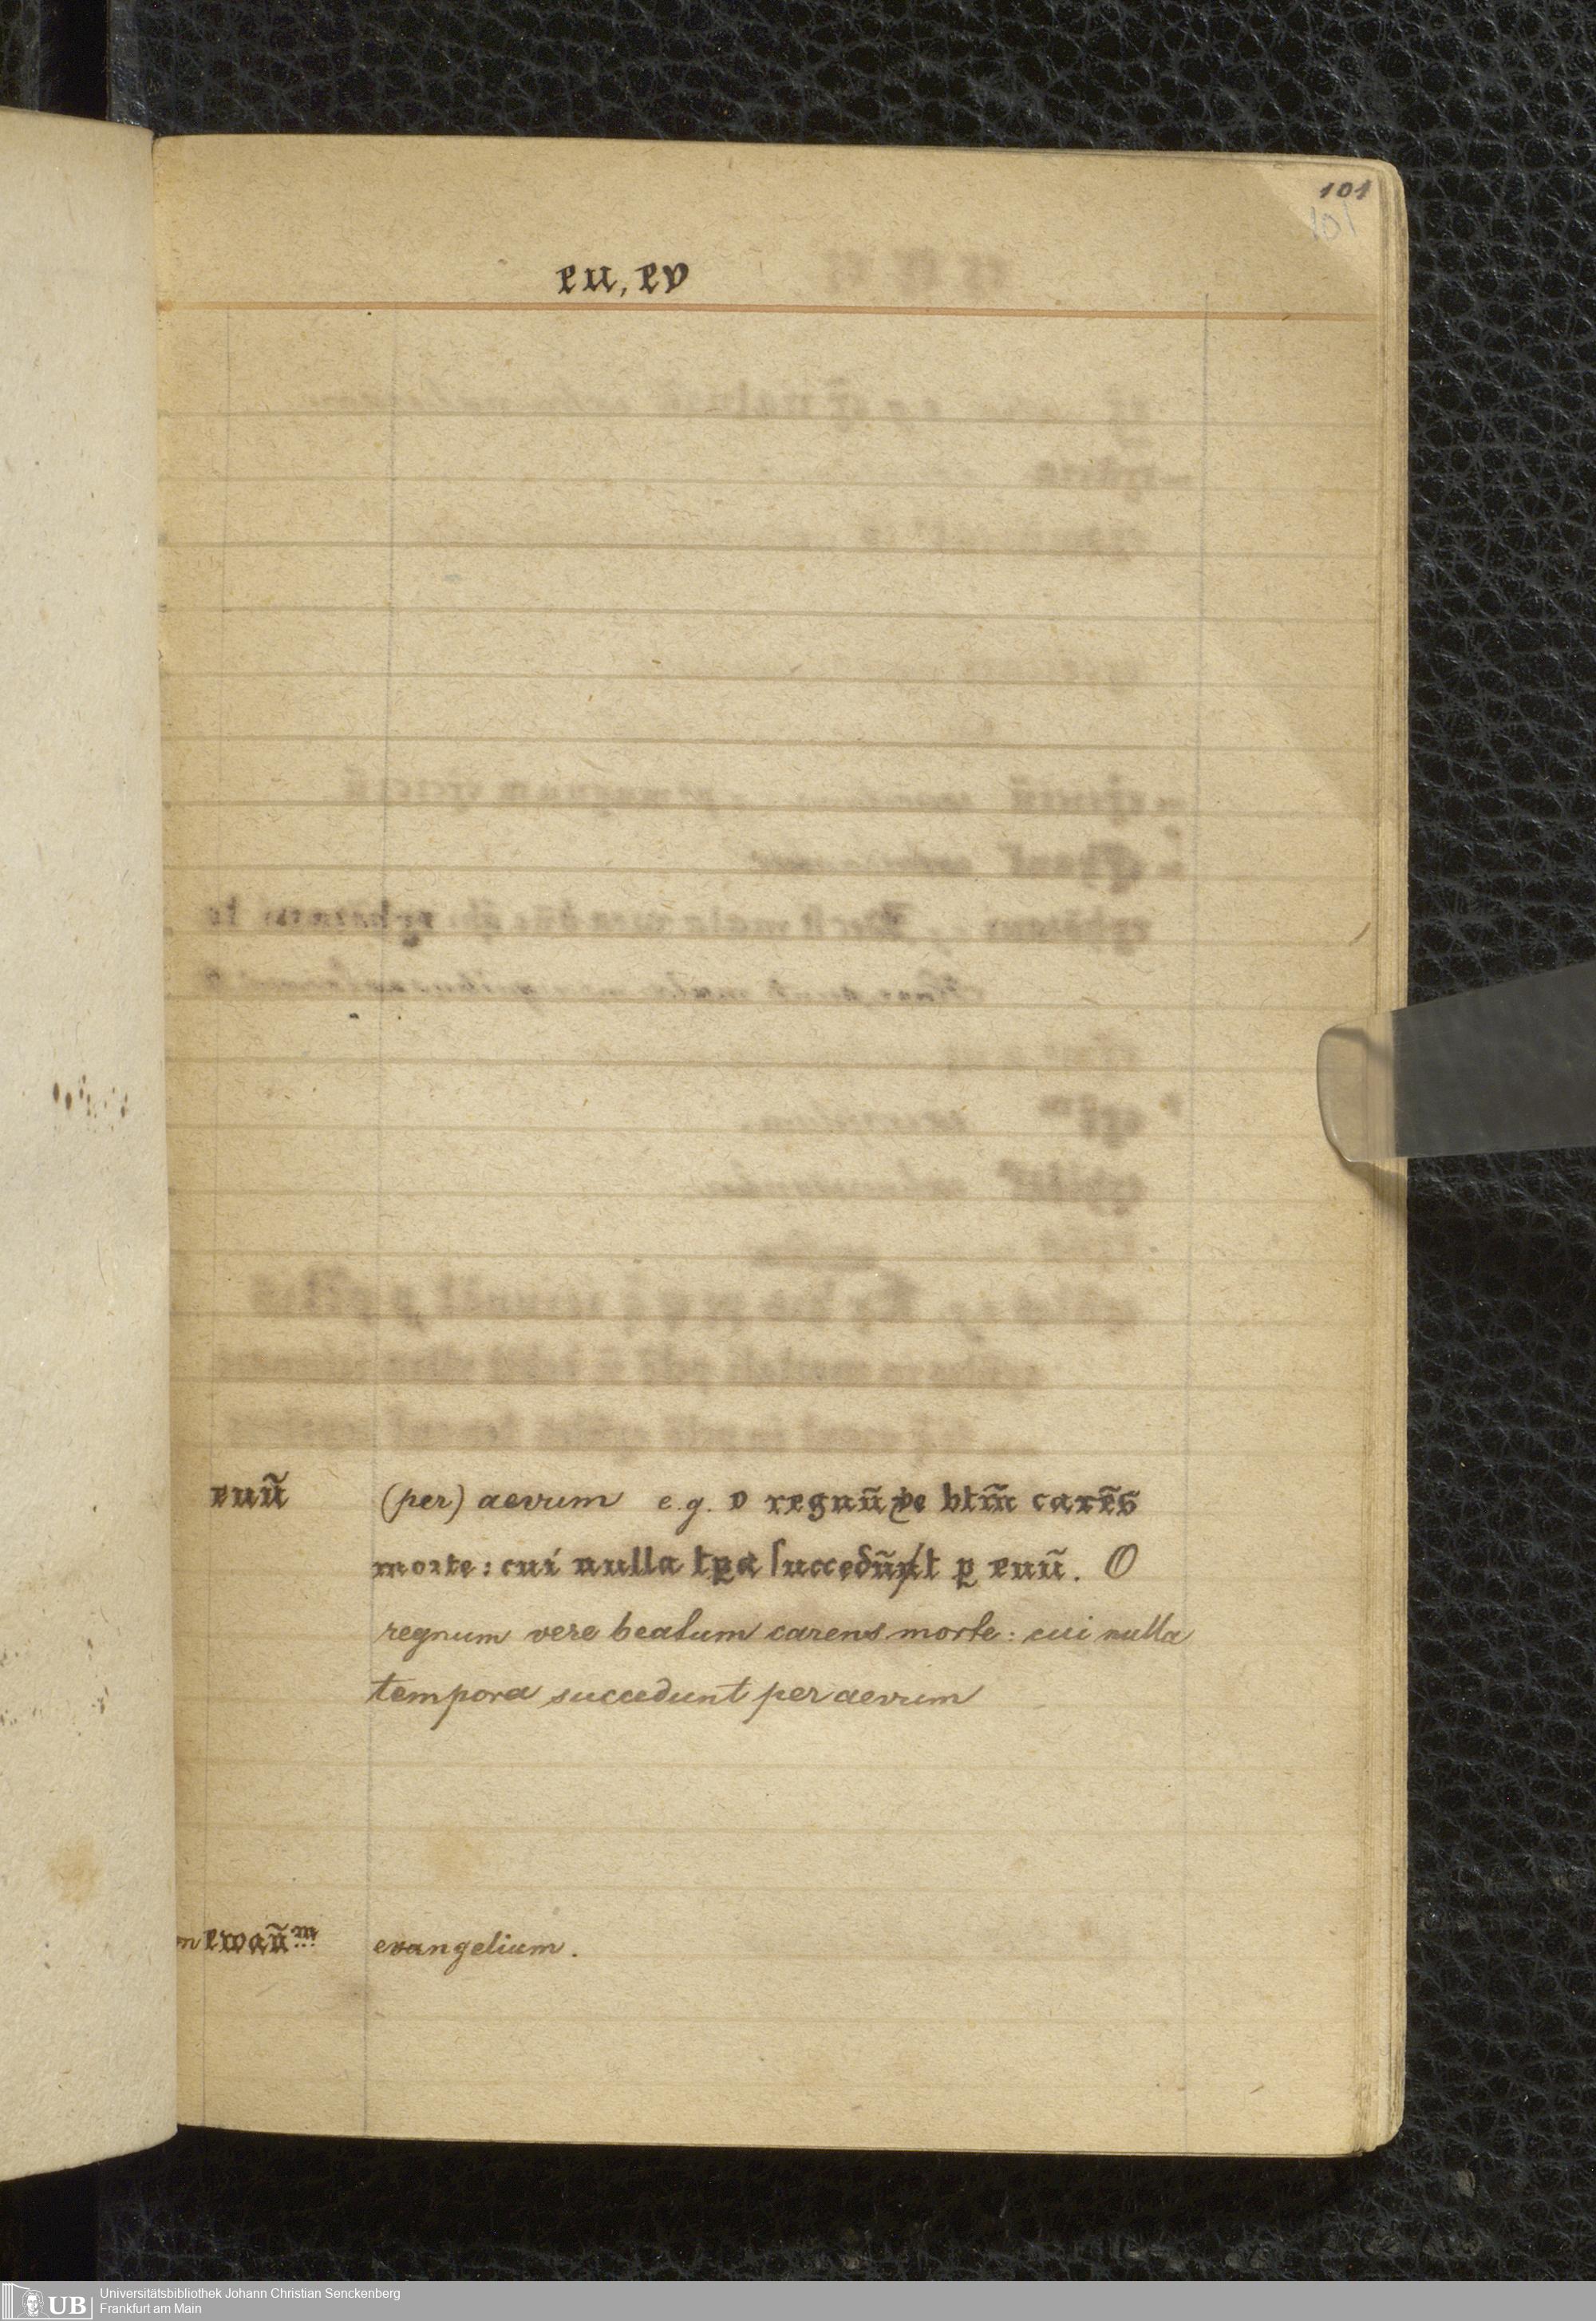 101
101
eu, ev
euũ (per) aevum e.g. o regnũ ve btm̃ carẽs
morte: cui nulla tꝑa ſuccedũt ꝑ euũ. O
regnum vere beatum carens morte: cui nulla
tempora succedunt per aevum
ewañᵐ evangelium.
UB Universitätsbibliothek Johann Christian Senckenberg
Frankfurt am Main